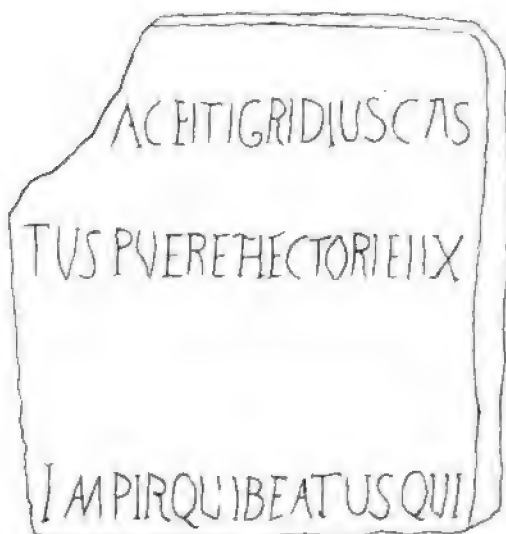 ACEITIGRIDIUSCAS
TUSPVEREHECTORIEIIX
IMPIRQUIBEATUSQUI